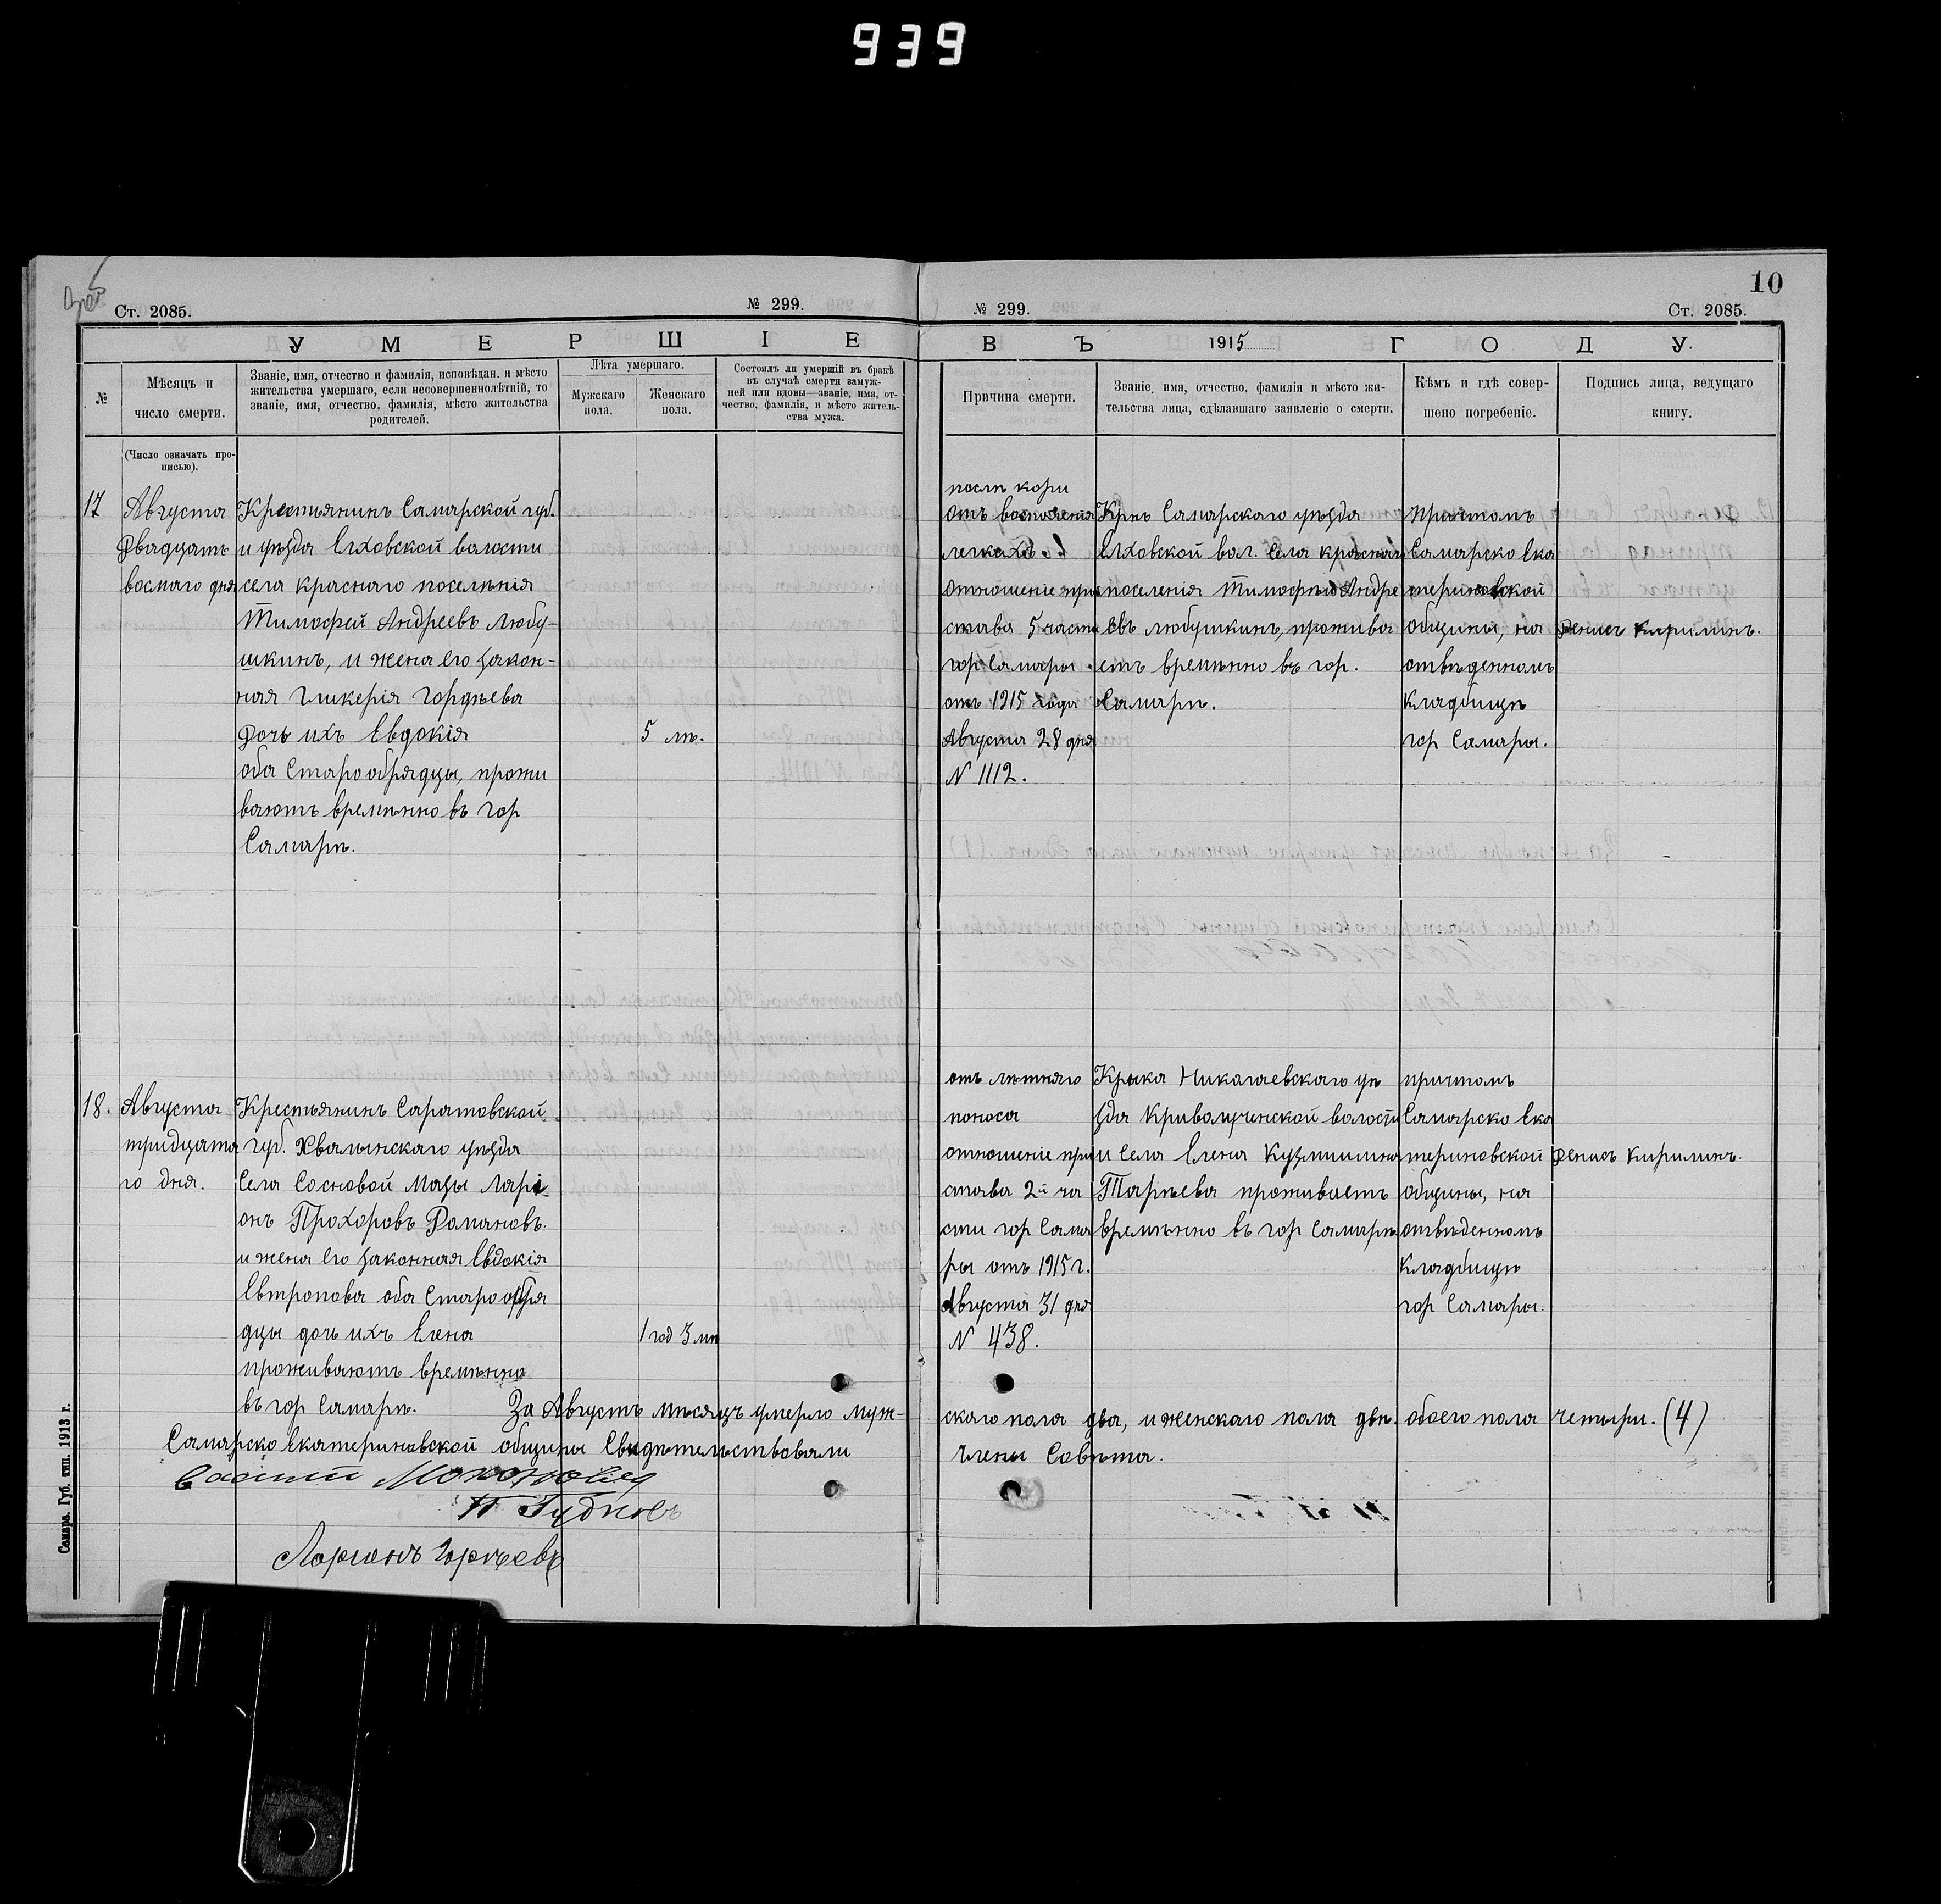 939
10
Ст. 2085.
№ 299.
№ 299.
Ст. 2085.
УМЕРШІЕ
ВЪ 1915 ГОДУ.
№
Мѣсяцъ и
число смерти.
Званіе, имя, отчество и фамилія, исповѣдан. и мѣсто
жительства умершаго, если несовершеннолѣтній, то
званіе, имя, отчество, фамилія, мѣсто жительства
родителей.
Лѣта умершаго.
Мужскаго
пола.
Женскаго
пола.
Состоялъ ли умершій въ бракѣ
въ случаѣ смерти замуж-
ней или вдовы—званіе, имя, от-
чество, фамилія, и мѣсто житель-
ства мужа.
Причина смерти.
Званіе, имя, отчество, фамилія и мѣсто жи-
тельства лица, сдѣлавшаго заявленіе о смерти.
Кѣмъ и гдѣ совер-
шено погребеніе.
Подпись лица, ведущаго
книгу.
(Число означать про-
писью).
17
Августа
Двадцать
восмаго дня
Крестьянинъ Самарской губ.
и уѣзда Елховской волости
села краснаго поселѣнія
Тимофей Андреевъ Любу-
шкинъ, и жена его закон-
ная Гликерія Гордѣева
дочь ихъ Евдокія
оба Старообрядцы, прожи
вають времѣнно въ гор
Самарѣ.
5 лѣ.
послѣ кори
отъ восполенія
легкахъ.
отношеніе при
става 5 части
гор Самары
отъ 1915 года
Августа 28 дня
N 1112.
Крнъ Самарскаго уѣзда
Елховской вол. села краснаго
поселенія Тимофѣй Андре
евъ Любушкинъ, прожива
етъ времѣнно въ гор.
Самарѣ.
причтомъ
Самарско Ека
териновской
общины, на
отвѣденномъ
Кладбищѣ
гор Самары.
Денисъ Кирилинъ.
18.
Августа
тридцата
го дня.
Крестьянинъ Саратовской
губ. Хвалынскаго уѣзда
Села Сосновой Мазы Лари
онъ Прохоровъ Романовъ.
и жена его законная Евдокія
Евтропова оба Старообря
дцы дочь ихъ Елена
проживають времѣнно
въ гор Самарѣ.
1 год 3 мѣ
отъ лѣтняго
поноса
отношеніе при
става 2й ча
сти гор Сама
ры отъ 1915 г.
Августа 31 дня
N 438.
Крыка Николаевскаго уѣ
зда Криволученской волости
и села Елена Кузмишина
Тарѣева проживаетъ
времѣнно въ гор Самарѣ.
причтомъ
Самарско Ека
териновской
общины, на
отвѣденномъ
Кладбищѣ
гор Самары.
Денисъ Кирилинъ.
За Августъ мѣсяцъ умерло муж-
скаго пола два, и женскаго пола двѣ. обоего пола четыри. (4)
Самарско Екатериновской общины Свидѣтельствовали
члены Совѣта.
П Гудковъ
Ларионъ Горѣевъ
Самара. Губ. тип. 1913 г.